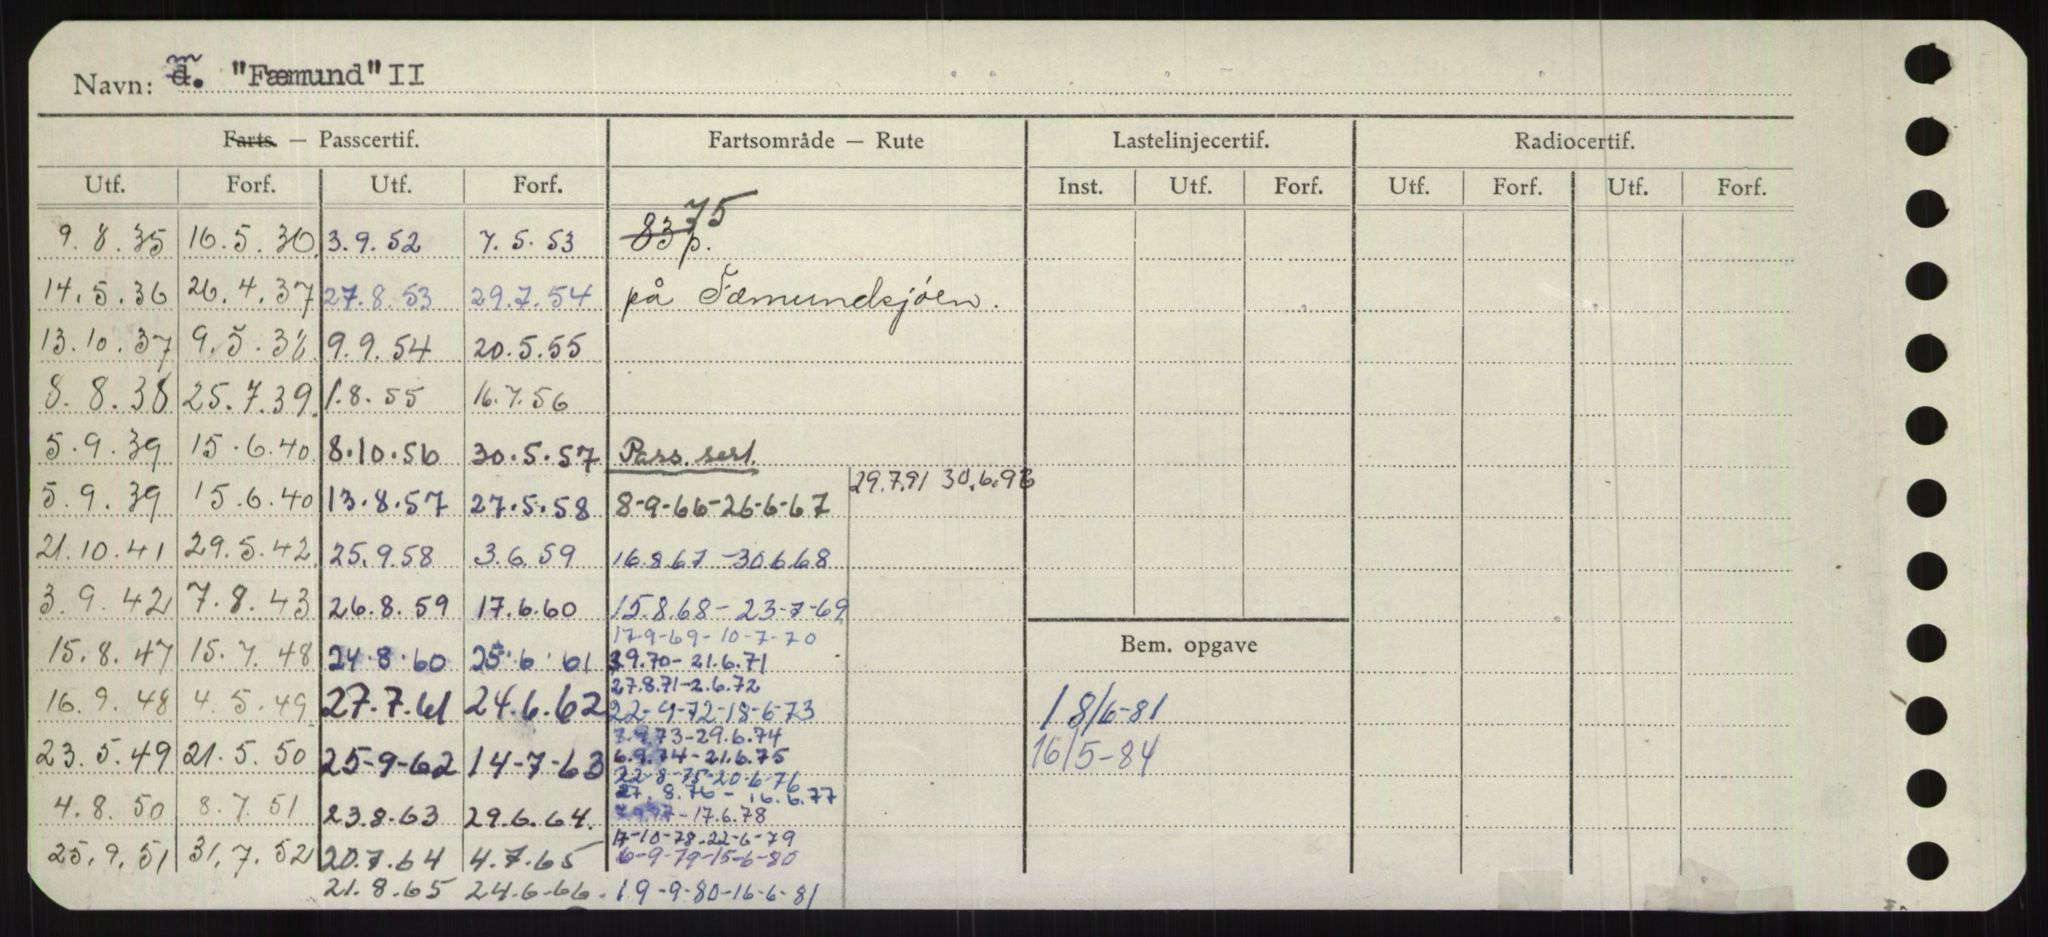 Navn: m. "Fæmund" II
Farts. — Passcertif. Fartsområde — Rute Lastelinjecertif. Radiocertif.
Utf. Forf. Utf. Forf. Inst. Utf. Forf. Utf. Forf. Utf. Forf.
75
9.8.35 16.5.36 3.9.52 7.5.53 83 p.
14.5.36 26.4.37 27.8.53 29.7.54 på Fæmundsjøen.
13.10.37 9.5.38 9.9.54 20.5.55
8.8.38 25.7.39 1.8.55 16.7.56
5.9.39 15.6.40 8.10.56 30.5.57 Pass. sert.
29.7.91 30.6.93
5.9.39 15.6.40 13.8.57 27.5.58 8-9-66-26-6-67
21.10.41 29.5.42 25.9.58 3.6.59 16.8.67 - 30.6.68
3.9.42 7.8.43 26.8.59 17.6.60 15.8.68 - 23-7-69
17-9-69-10-7-70
15.8.47 15.7.48 24.8.60 25.6.61 3.9.70 - 21.6.71
Bem. opgave
27.8.71-2.6.72
16.9.48 4.5.49 27.7.61 24.6.62 22-9-72-18-6-73 18/6-81
7.9.73-29.6.74
23.5.49 21.5.50 25-9-62 14-7-63 6.9.74-21.6.75 16/5-84
22-8-75-20-6-76
27.8.76 - 16.6.77
4.8.50 8.7.51 23.8.63 29.6.64. - 17.6.78
17-10-78-22-6-79
25.9.51 31.7.52 20.7.64 4.7.65 6-9-79-15-6-80
21.8.65 24.6-66. 19-9-80-16-6-81